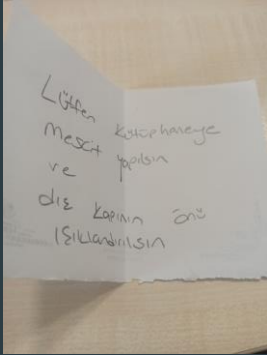 Lütfen kütüphaneye
mescit yapılsın
ve
dış kapının önü
ışıklandırılsın